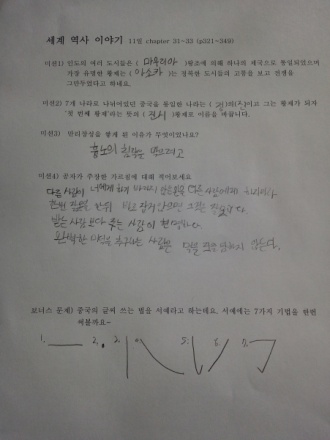 세계 역사 이야기 11일 chapter 31-33 (p321~349)
미션1) 인도의 여러 도시들은 ( 마우리아 )왕조에 의해 하나의 제국으로 통일되었으며
가장 유명한 황제는 ( 아소카 )는 정복한 도시들의 고통을 보고 전쟁을
그만두었다고 하네요.
미션2) 7개 나라로 나뉘어있던 중국을 통일한 나라는 ( 진(Qin) )이고 그는 황제가 되자
'첫 번째 황제'라는 뜻의 ( 진시 )황제로 이름을 바꿉니다.
미션3) 만리장성을 쌓게 된 이유가 무엇이었나요?
흉노의 침략을 막으려고
미션4) 공자가 주장한 가르침에 대해 적어보세요
다른 사람이 너에게 하지 마라
받는 사람보다 주는 사람이 현명하다.
완벽한 사람은
보너스 문제) 중국의 글씨 쓰는 법을 서예라고 하는데요. 서예에는 7가지 기법을 한번
써볼까요~
1. 2. 3. 5. 6. 7.